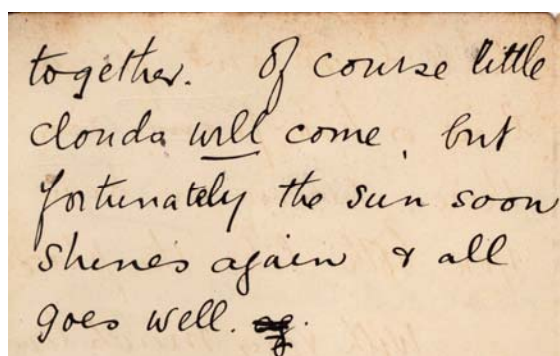 together. Of course little
clouds will come, but
fortunately the sun soon
shines again & all
goes well.